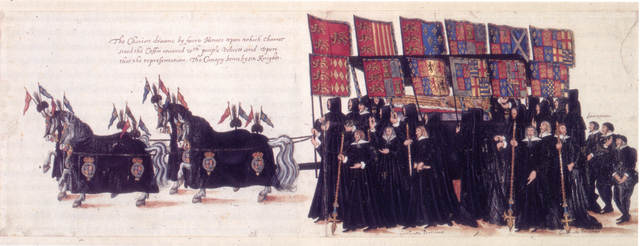 The Chariott drawne by foure Horses upon which Charret
stood the Coffin covered wth purple Velvett and upon
that the representation. The Canapy borne by six Knights.